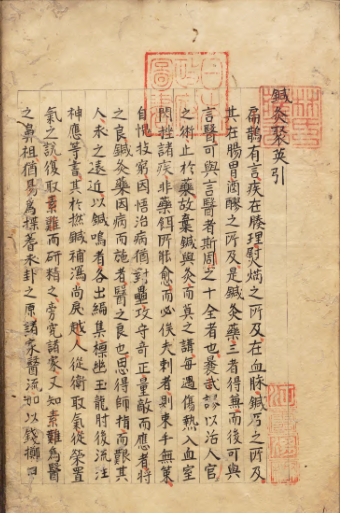 鍼灸聚英引
扁鵲有言疾在腠理熨焫之所及在血脉鍼石之所及
其在腸胃酒醪之所及是鍼灸藥三者得兼而後可與
言醫可與言醫者斯周之十全者也曩武謬以治人官
之術止於藥故棄鍼與灸而莫之講每遇傷熱入血室
閃挫諸疾非藥餌所能愈而必俟夫刺者則束手無策
自愧技窮因悟治病猶對壘攻守奇正量敵而應者將
之良鍼灸藥因病而施者醫之良也思得師指而艱其
人求之遠近以鍼鳴者各出編集標幽玉龍肘後流注
神應等書其於撚鍼補瀉尚戾越人從衛取氣從榮置
氣之說復取素難而研精之旁究諸家又知素難爲醫
之鼻祖猶易爲揲蓍求卦之原諸家醫流如以錢擲